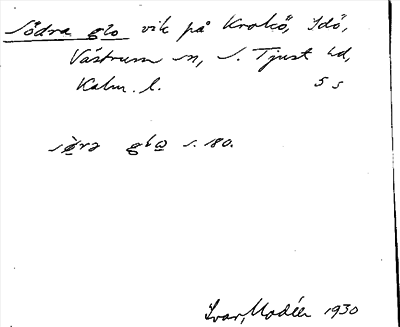 Södra glo vik på Krokö, Idö,
Västrum sn, S. Tjust hd,
Kalm. l. 5 s
glo s. 80.
Ivar Modéer 1930